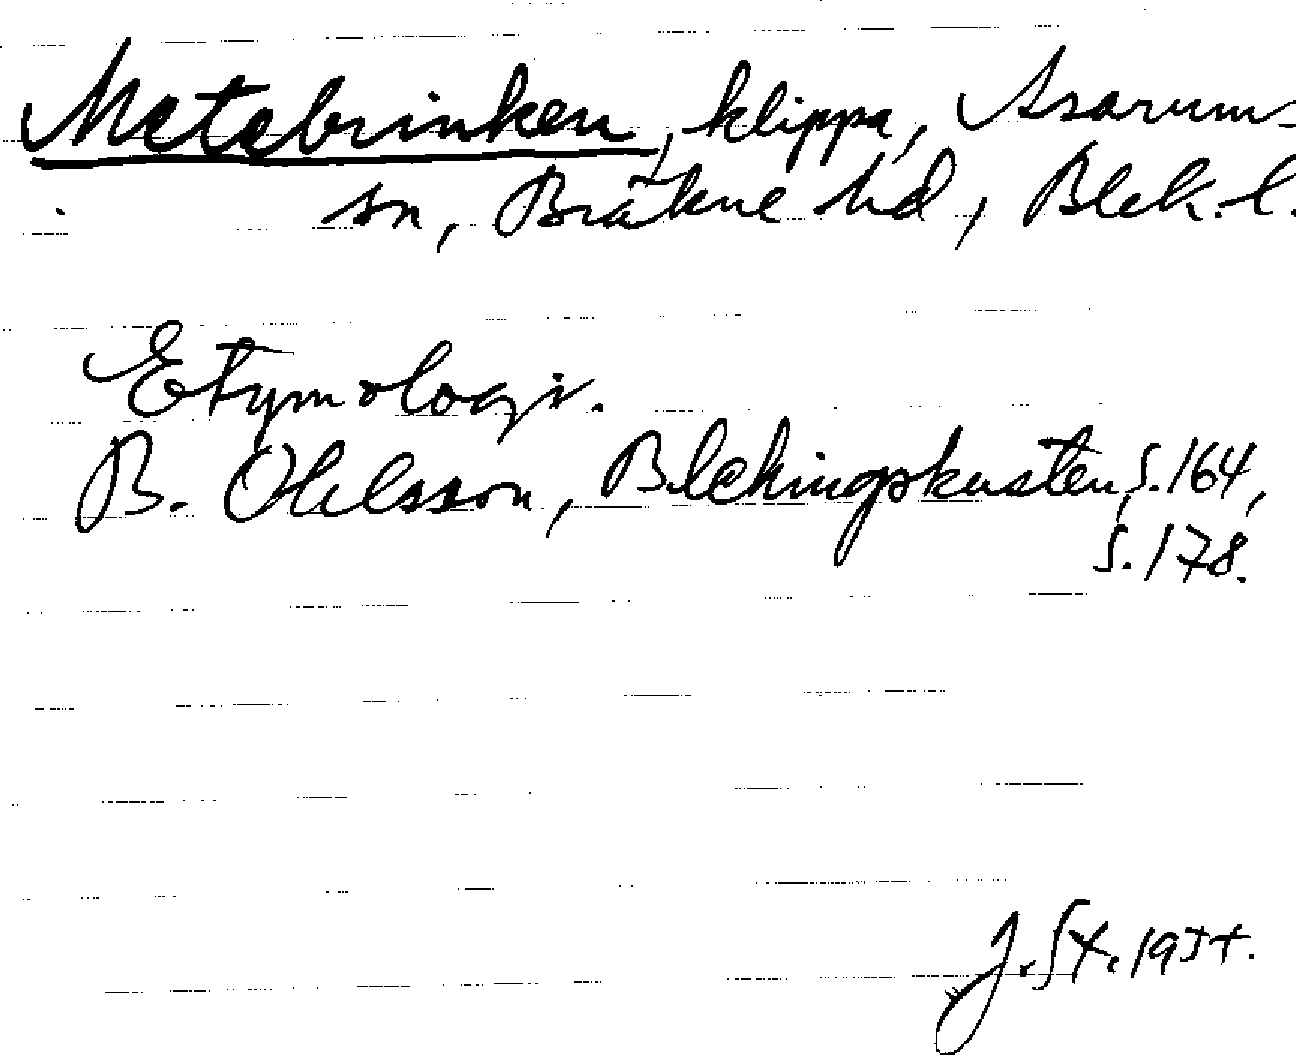 Metebrinken, klippa, Asarums
sn, Bräkne hd, Blek. l.
Etymologi.
B. Ohlsson, Blekingskusten, s. 164,
s. 178.
J. Sx. 1954.